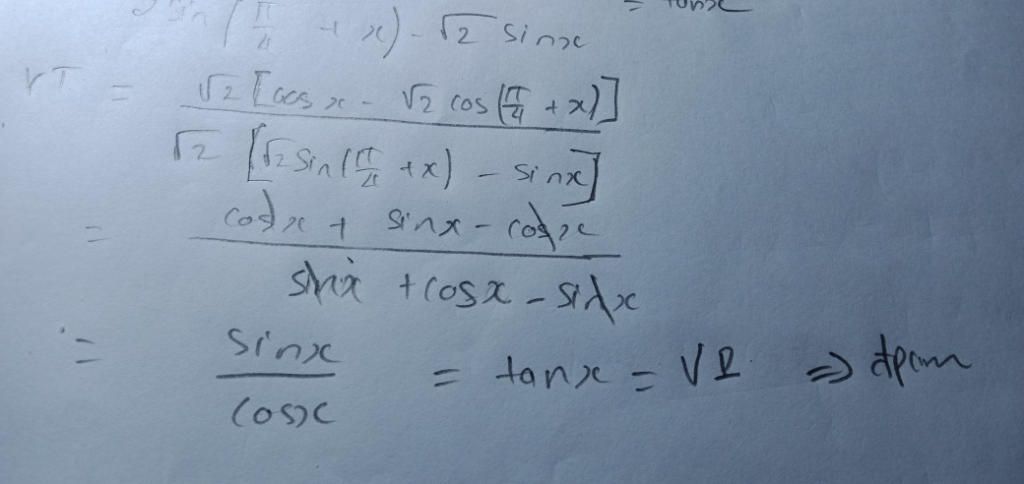 = tanx
sin(π/4 + x) - √2 sinx
VT = √2 [cos x - √2 cos(π/4 + x)] / √2 [√2 sin(π/4 + x) - sinx]
= cosx + sinx - cosx / sinx + cosx - sinx
= sinx / cosx = tanx = VP ⇒ đpcm